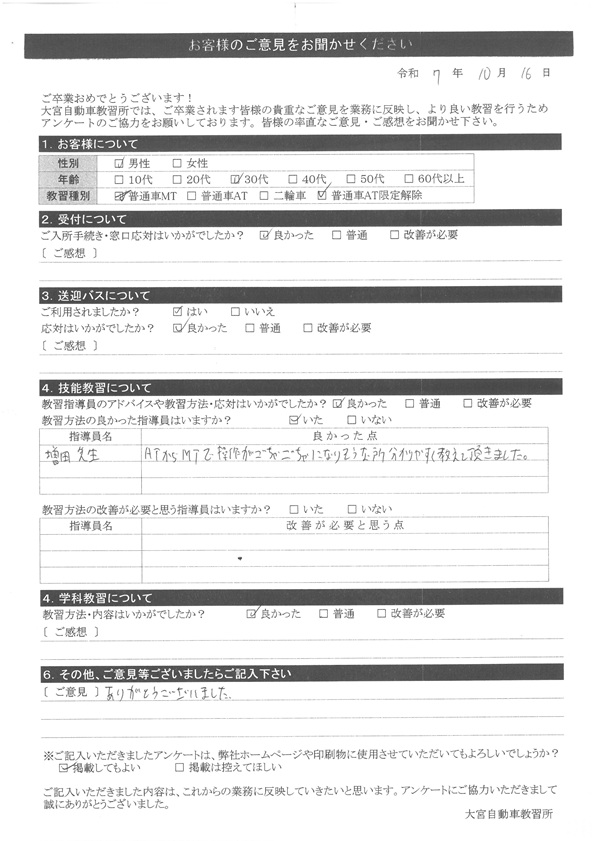 お客様のご意見をお聞かせください
令和 7 年 10 月 16 日
ご卒業おめでとうございます！
大宮自動車教習所では、ご卒業されます皆様の貴重なご意見を業務に反映し、より良い教習を行うため
アンケートのご協力をお願いしております。皆様の率直なご意見・ご感想をお聞かせ下さい。
1. お客様について
性別 ☑ 男性 □ 女性
年齢 □ 10代 □ 20代 ☑ 30代 □ 40代 □ 50代 □ 60代以上
教習種別 ☑ 普通車MT □ 普通車AT □ 二輪車 ☑ 普通車AT限定解除
2. 受付について
ご入所手続き・窓口応対はいかがでしたか？ ☑ 良かった □ 普通 □ 改善が必要
〔 ご感想 〕
3. 送迎バスについて
ご利用されましたか？ ☑ はい □ いいえ
応対はいかがでしたか？ ☑ 良かった □ 普通 □ 改善が必要
〔 ご感想 〕
4. 技能教習について
教習指導員のアドバイスや教習方法・応対はいかがでしたか？ ☑ 良かった □ 普通 □ 改善が必要
教習方法の良かった指導員はいますか？ ☑ いた □ いない
指導員名 良かった点
増田先生 ATからMTで操作がごちゃごちゃになりそうな所分かりやすく教えて頂きました。
教習方法の改善が必要と思う指導員はいますか？ □ いた □ いない
指導員名 改善が必要と思う点
4. 学科教習について
教習方法・内容はいかがでしたか？ ☑ 良かった □ 普通 □ 改善が必要
〔 ご感想 〕
6. その他、ご意見等ございましたらご記入下さい
〔 ご意見 〕ありがとうございました。
※ご記入いただきましたアンケートは、弊社ホームページや印刷物に使用させていただいてもよろしいでしょうか？
☑ 掲載してもよい □ 掲載は控えてほしい
ご記入いただきました内容は、これからの業務に反映していきたいと思います。アンケートにご協力いただきまして
誠にありがとうございました。
大宮自動車教習所